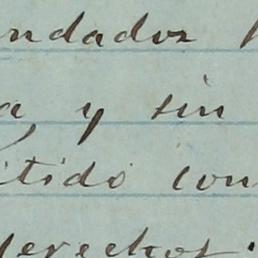 ndador
a y sin
itido con
derechos.